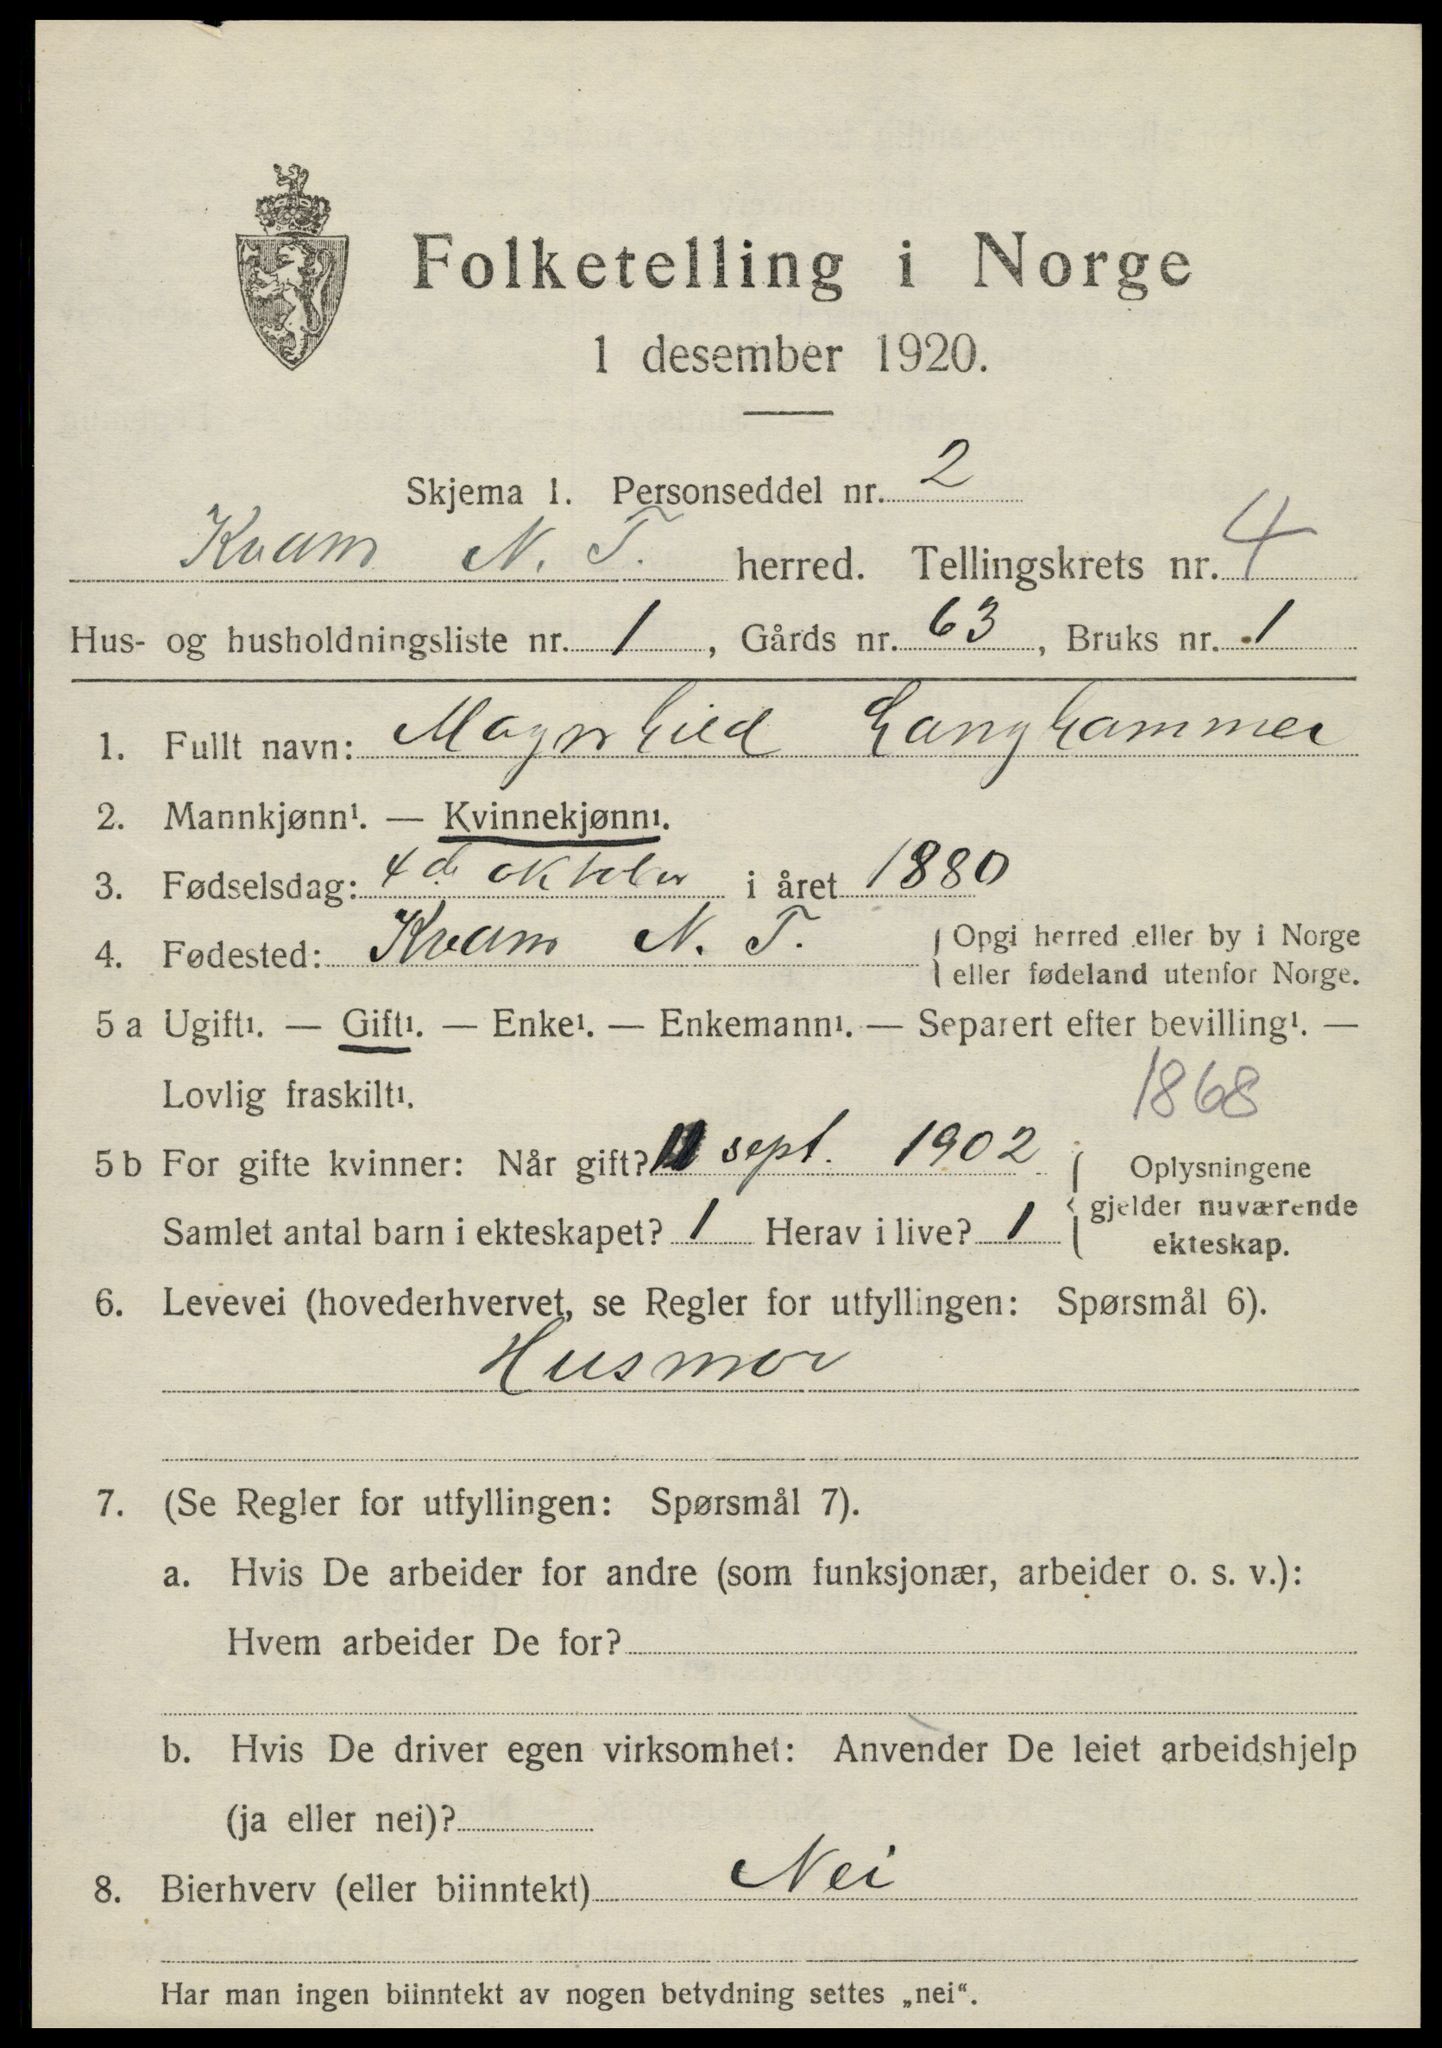 Folketelling i Norge
1 desember 1920.
Skjema 1. Personseddel nr. 2
Kvam N. T. herred. Tellingskrets nr. 4
Hus- og husholdningsliste nr. 1, Gårds nr. 63, Bruks nr. 1
1. Fullt navn: Magnhild Langhammer
2. Mannkjønn¹. — Kvinnekjønn¹.
3. Fødselsdag: 4de oktober i året 1880
4. Fødested: Kvam N. T. { Opgi herred eller by i Norge
eller fødeland utenfor Norge.
5 a Ugift¹. — Gift¹. — Enke¹. — Enkemann¹. — Separert efter bevilling¹. —
Lovlig fraskilt¹. 1868
5 b For gifte kvinner: Når gift? sept. 1902 { Oplysningene
gjelder nuværende
Samlet antal barn i ekteskapet? 1 Herav i live? 1 ekteskap.
6. Levevei (hovederhvervet, se Regler for utfyllingen: Spørsmål 6).
Husmor
7. (Se Regler for utfyllingen: Spørsmål 7).
a. Hvis De arbeider for andre (som funksjonær, arbeider o. s. v.):
Hvem arbeider De for?
b. Hvis De driver egen virksomhet: Anvender De leiet arbeidshjelp
(ja eller nei)?
8. Bierhverv (eller biinntekt) Nei
Har man ingen biinntekt av nogen betydning settes „nei“.